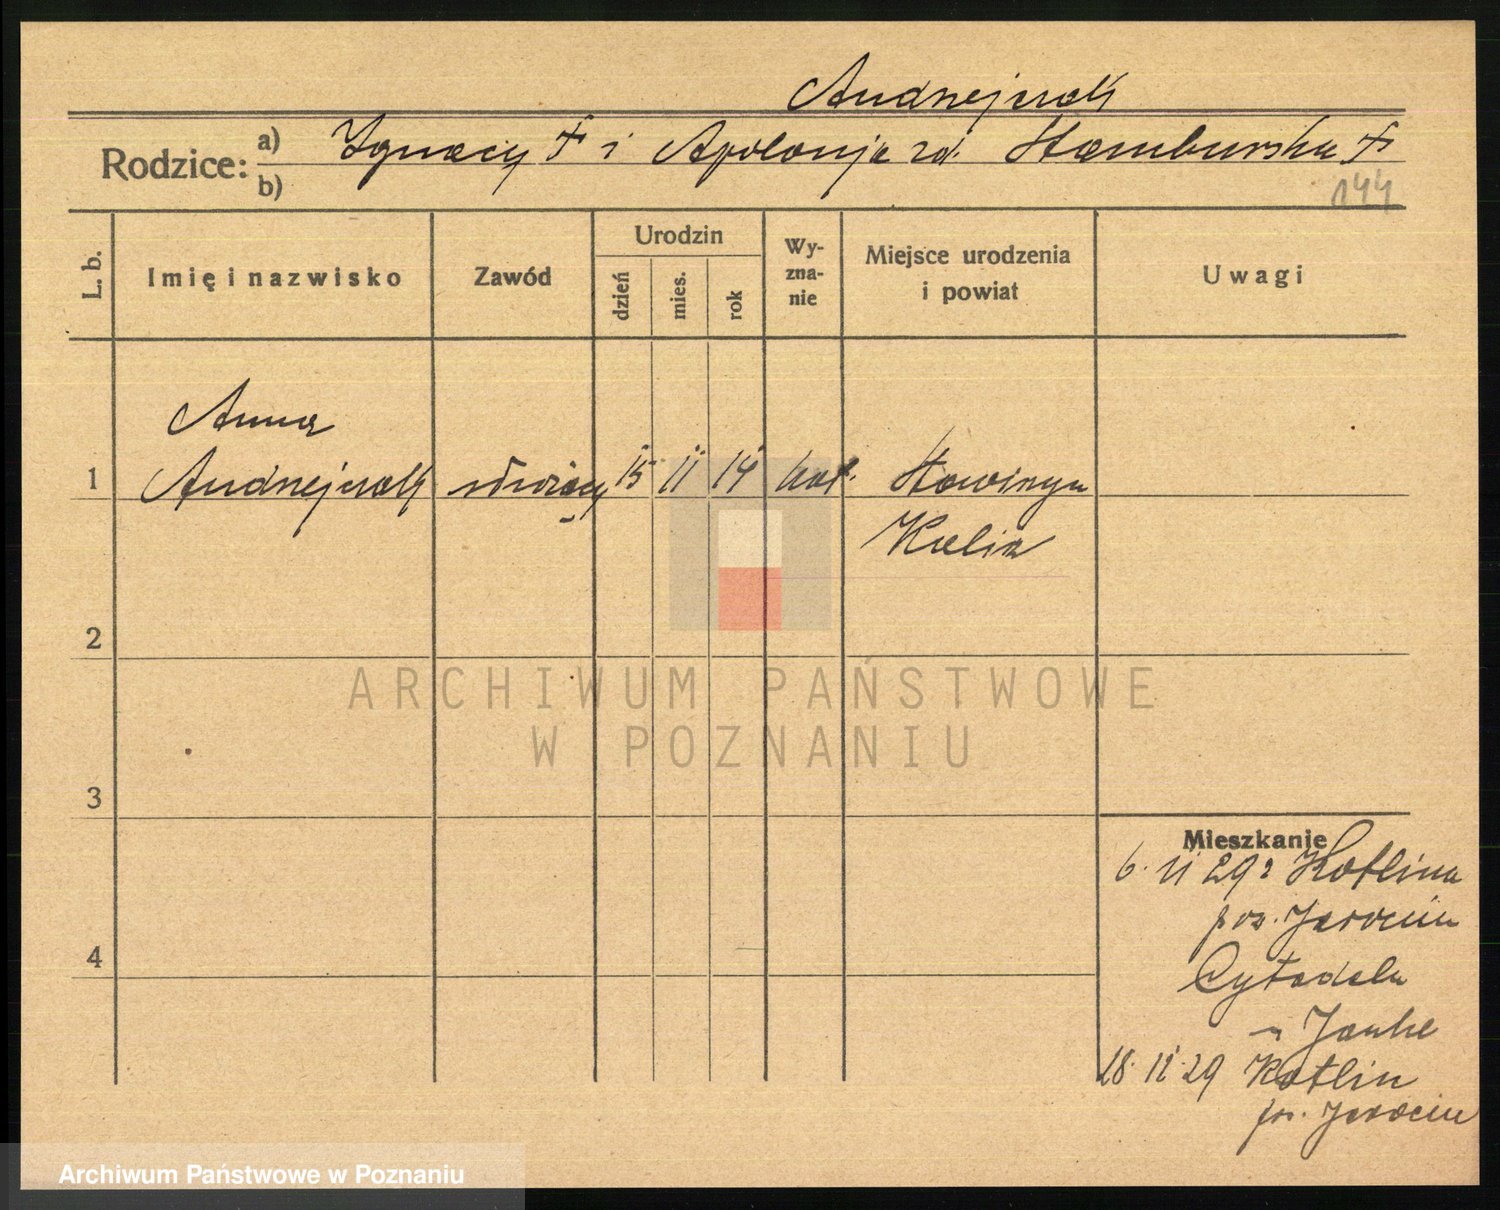 Andrzejczak
Rodzice: a) Ignacy † i Apolonja zd. Stamburska †
b)
144
L. b.
Imię i nazwisko
Zawód
Urodzin
dzień
mies.
rok
Wy-
zna-
nie
Miejsce urodzenia
i powiat
Uwagi
Anna
1 Andrzejczak służący 15 11 14 kat.
Kalisz
2
3
4
Mieszkanie
6. 11 29 z Kotlina
pow. Jarocin
Cytadela
u Janke
18. 12. 29 Kotlin
p. Jarocin
ARCHIWUM PAŃSTWOWE
W POZNANIU
Archiwum Państwowe w Poznaniu